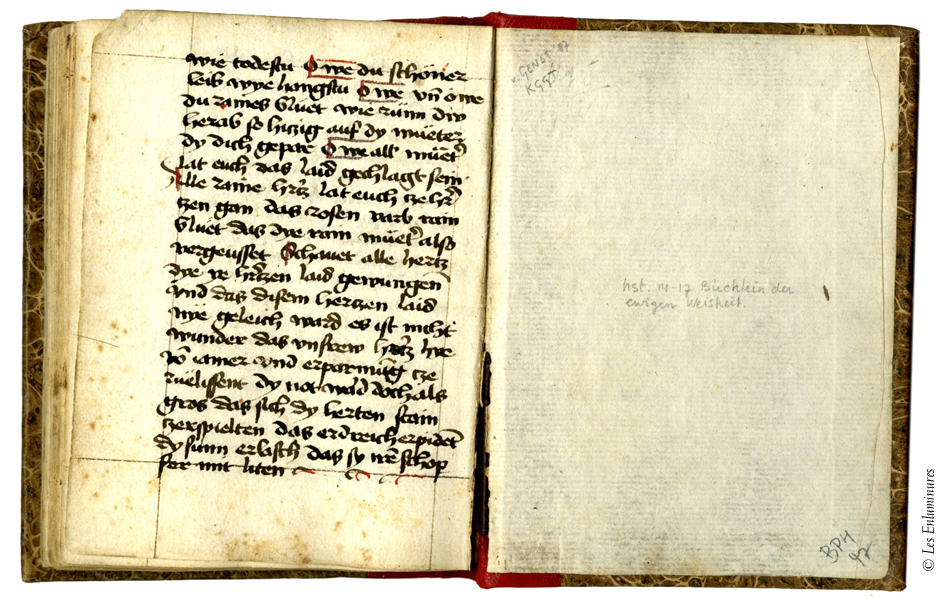 wie todestu O we du schöner
leib wye hangstu O we vn̄ owe
du raines blüet wie rünn dw
herab so hiczig auf dy müeter
dy dich gepar O we all müet̄
lat euch das laid gechlagt sein
Alle raine hr̄tz lat euch ze hr̄
tzen gan das rosen varb rain
blüet das dye rain müet̄ also
vergeusset Schauet alle hertz
dye ye hr̄tzen laid gewungen̄
vnd das disem hertzen laid
nye geleich ward es ist nicht
wunder das vnsrew hr̄tz hye
vō iamer vnd erparmūg cze
rüelissent dy not ward doch als
gros das sich dy herten stain
zerspielten das erdreich erpidet̄
dy sunn erlasch das sy irē schop
fer mit liten
v. GENDT '47
KGGT
hst. 14-17 Büchlein der
ewigen Weisheit.
BPH
47
© Les Enluminures